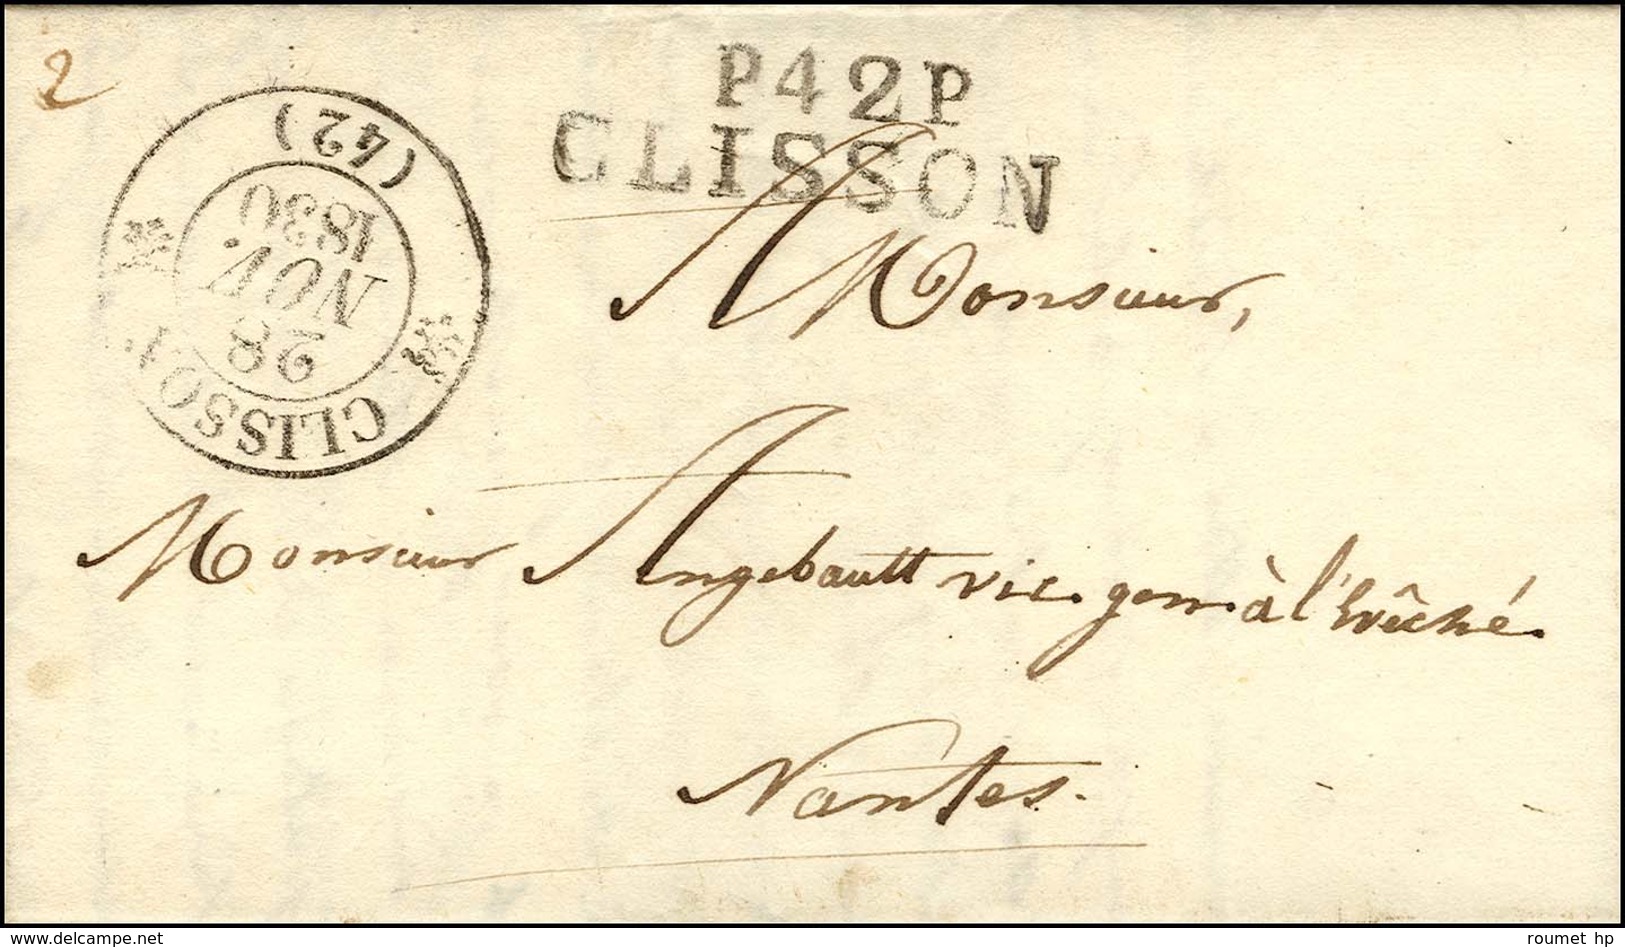 2
P42P
CLISSON
CLISSON
28
NOV.
1830
(42)
A
Monsieur,
Monsieur Angebautt vic. gen. à l'Evêché.
Nantes.
delcampe.net
roumet hp